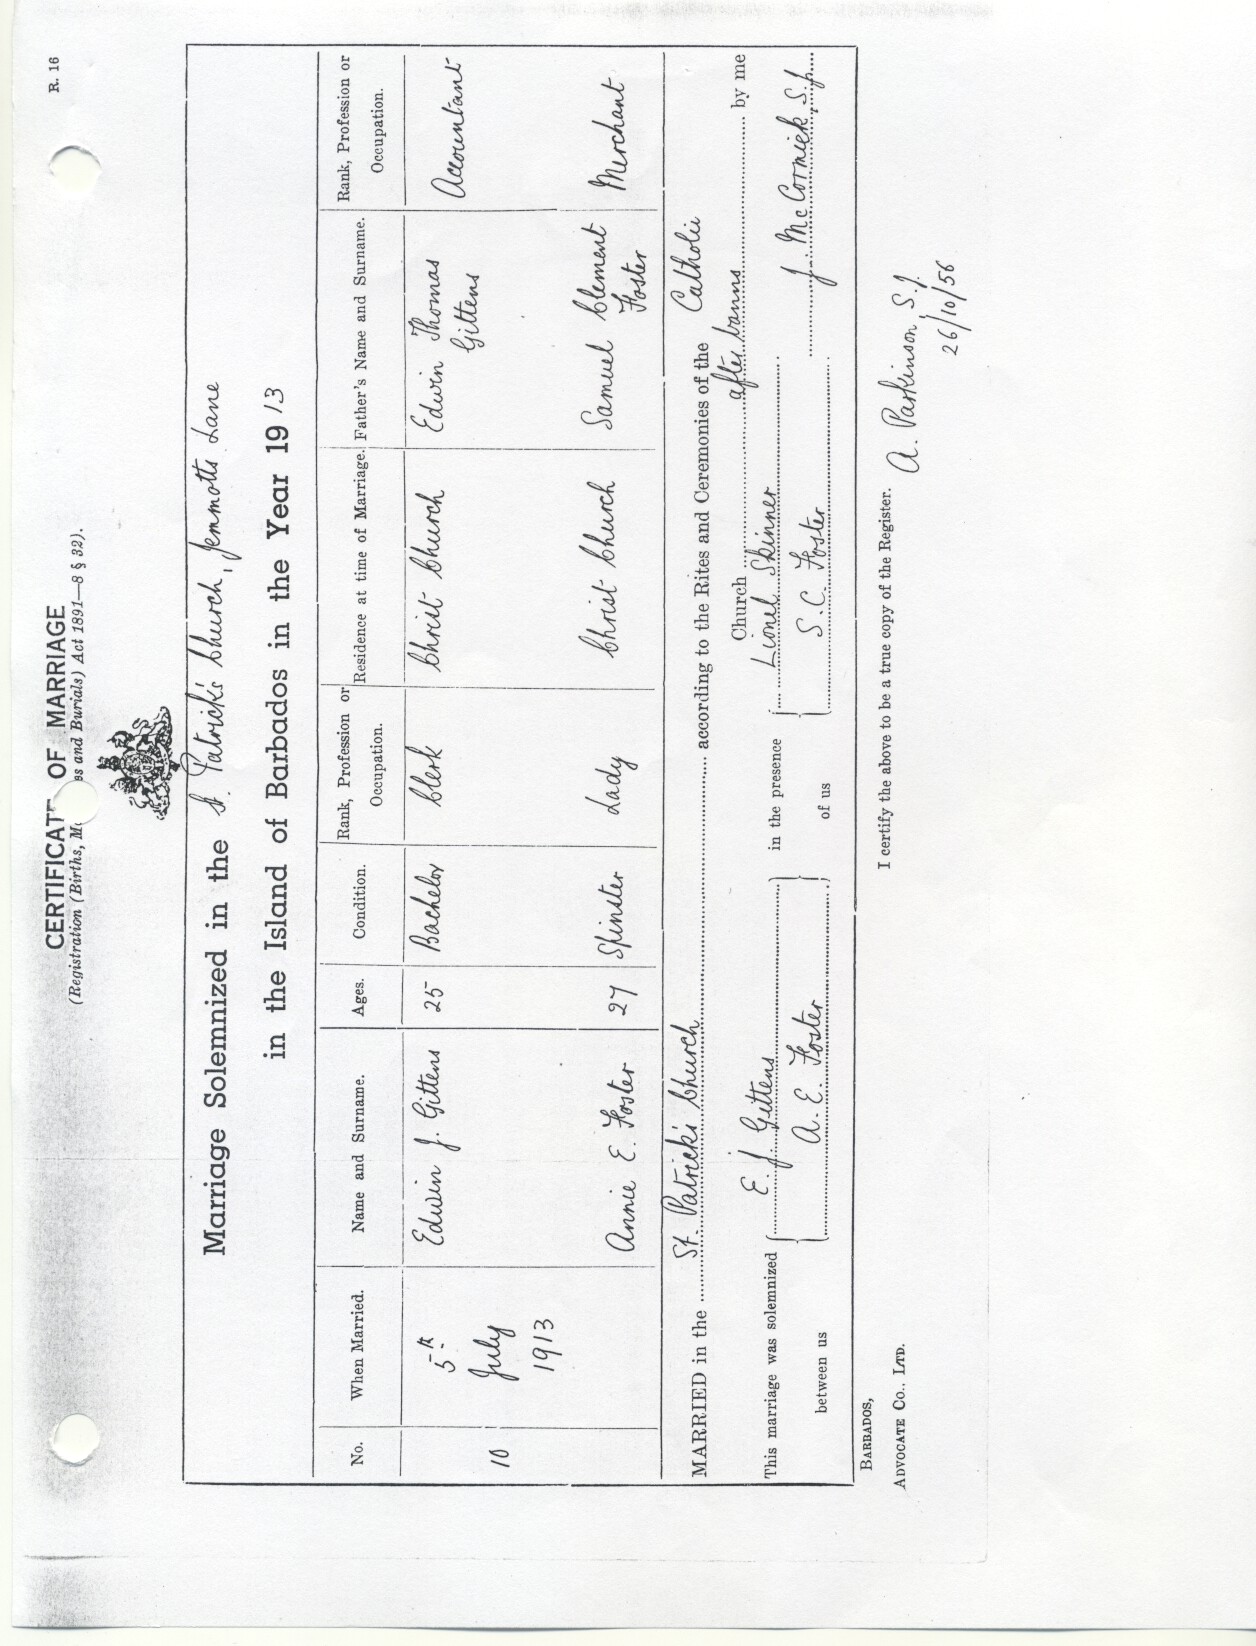 R. 16
CERTIFICAT OF MARRIAGE
(Registration (Births, M es and Burials) Act 1891—8 § 32).
Marriage Solemnized in the St. Patrick's Church, Jemmotts Lane
in the Island of Barbados in the Year 1913
No. When Married. Name and Surname. Ages. Condition. Rank, Profession or Occupation. Residence at time of Marriage. Father's Name and Surname. Rank, Profession or Occupation.
10 5th July 1913 Edwin J. Gittens 25 Bachelor Clerk Christ Church Edwin Thomas Gittens Accountant
Annie E. Foster 27 Spinster Lady Christ Church Samuel Clement Foster Merchant
MARRIED in the St. Patrick's Church according to the Rites and Ceremonies of the Catholic
Church after banns by me
This marriage was solemnized between us
E. J. Gittens
A. E. Foster
in the presence of us
Lionel Skinner
S. C. Foster
J. McCormick, S.J.
BARBADOS,
ADVOCATE CO., LTD.
I certify the above to be a true copy of the Register.
A. Parkinson, S.J.
26/10/56